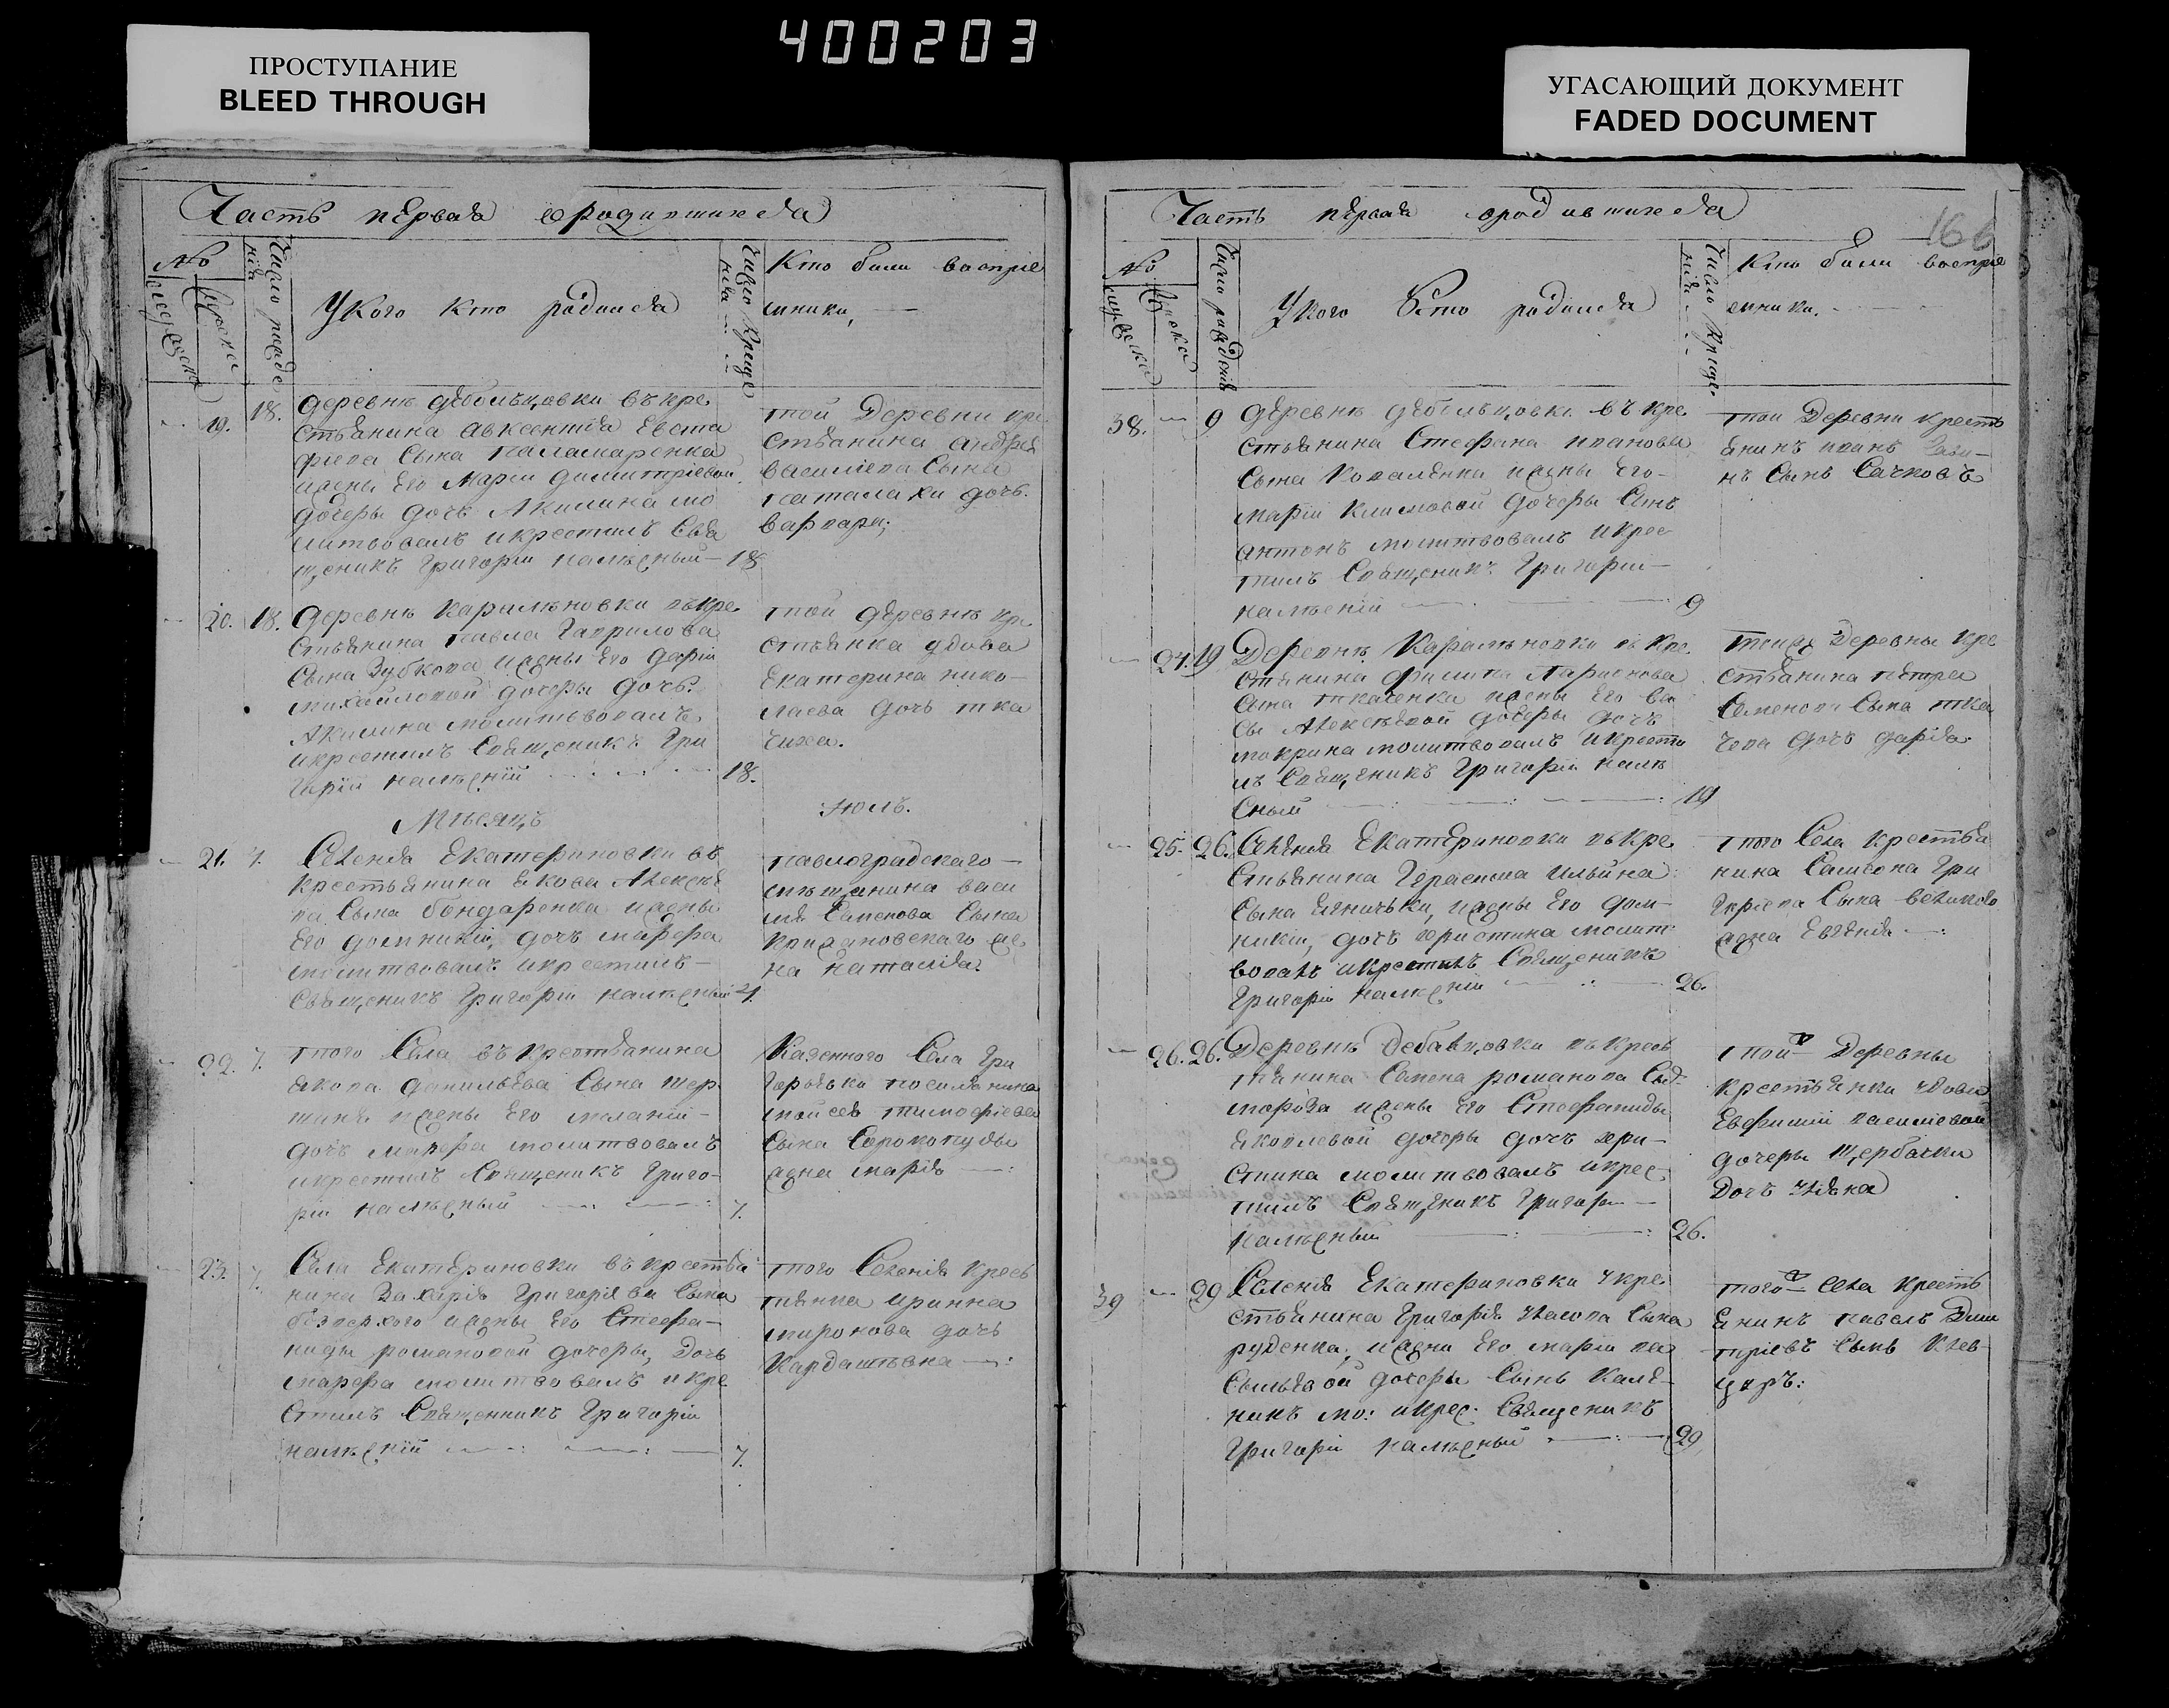 400203
ПРОСТУПАНИЕ
BLEED THROUGH
УГАСАЮЩИЙ ДОКУМЕНТ
FADED DOCUMENT
Часть первая о родившихся
№
Число рожде
нія
У кого кто родился
Число креще
нія
Кто были воспріе
мники,
19. 18. деревнѣ дебельцовки въ кре
стьянина авксентія Евста
фіева Сына паламаренка
жены Его Маріи димитріевой
дочеры дочь Акилина мо
литвовалъ и крестилъ Свя
щеникъ Григорій 18
той Деревни кре
стьянина андрея
василіева Сына
дочь
варвара;
20. 18. деревнѣ Каралѣновки въ кре
стьянина павла Гаврилова
Сына Зубкова жены Его Даріи
михайловой дочеры дочь
Акилина молитвовалъ
и крестилъ Священикъ Гри
горій 18.
той деревнѣ кре
стьянка удова
Екатерина нико
лаева дочь тка
чиха.
Мѣсяцъ Июль.
21. 7. Селенія Екатериновки въ
крестьянина якова Алексѣе
ва Сына бондаренка жены
Его домникіи, дочь марфа
молитвовалъ и крестилъ
Священикъ Григорій 7.
павлоградскаго
мѣщанина васи
лія Семенова Сына
же
на наталія
22. 7. того Села въ крестьянина
якова данильева Сына
жены Его меланіи
дочь марфа молитвовалъ
и крестилъ Священикъ Григо
рій 7.
Казенного Села Гри
поселянина
мойсея тимофіева
Сына Сорокопуды
жена марія
23. 7. Села Екатериновки въ крестья
нина Захарія Григоріева Сына
безверхого жены Его Стефа
ниды романовой дочеры, дочь
марфа молитвовалъ и кре
стилъ Священникъ Григорій
7.
того Селенія крес
тянка иринна
миронова дочь
Кардашевна
Часть первая о родившихся
166
№
Число рожденія
У кого кто родился
Число креще
нія
Кто были воспріе
мники.
38. 9 деревнѣ дебельцовки въ кре
стьянина Стефана иванова
Сына Коваленка жены Его
маріи климовой дочеры Сынъ
антонъ молитвовалъ и крес
тилъ Священикъ Григорій
9
той Деревни кресть
янинъ иванъ
нъ Сынъ Сачковъ
24. 19 Деревнѣ Каралѣновки въ кре
стянина филипа Ларионова
Сына ткаченка жены Его ва
сы Алексѣевой дочеры дочь
макрина молитвовалъ и крести
лъ Священикъ Григорій
19
тойже Деревны кре
стьянина петра
Семенова Сына тка
чова дочь дарія
25. 26. Селенія Екатериновки въ кре
стьянина Герасима Ильина
Сына жены Его дом
никіи, дочь христина молит
вовалъ и крестилъ Священикъ
Григорій 26.
того Села крестья
нина Самсона Гри
горіева Сына великого
жена Евгенія
26. 26. Деревнѣ Дебальцовки въ крес
тянина Семена романова Сына
мороза жены Его Стефаниды
яковлевой дочеры дочь хри
стина молитвовалъ и крес
тилъ Священикъ Григорій
26.
той Деревны
крестьянки удовы
Евфиміи василіевой
дочеры Щербачки
Дочь Уляна
39 29 Селенія Екатериновки у кре
стьянина Григорія Власова Сына
руденка, жены Его маріи ва
сильевой дочеры Сынъ Кале
никъ мо: и крес: Священикъ
Григорій 29
того Села кресть
янинъ павелъ Дми
тріевъ Сынъ Клев
цовъ: